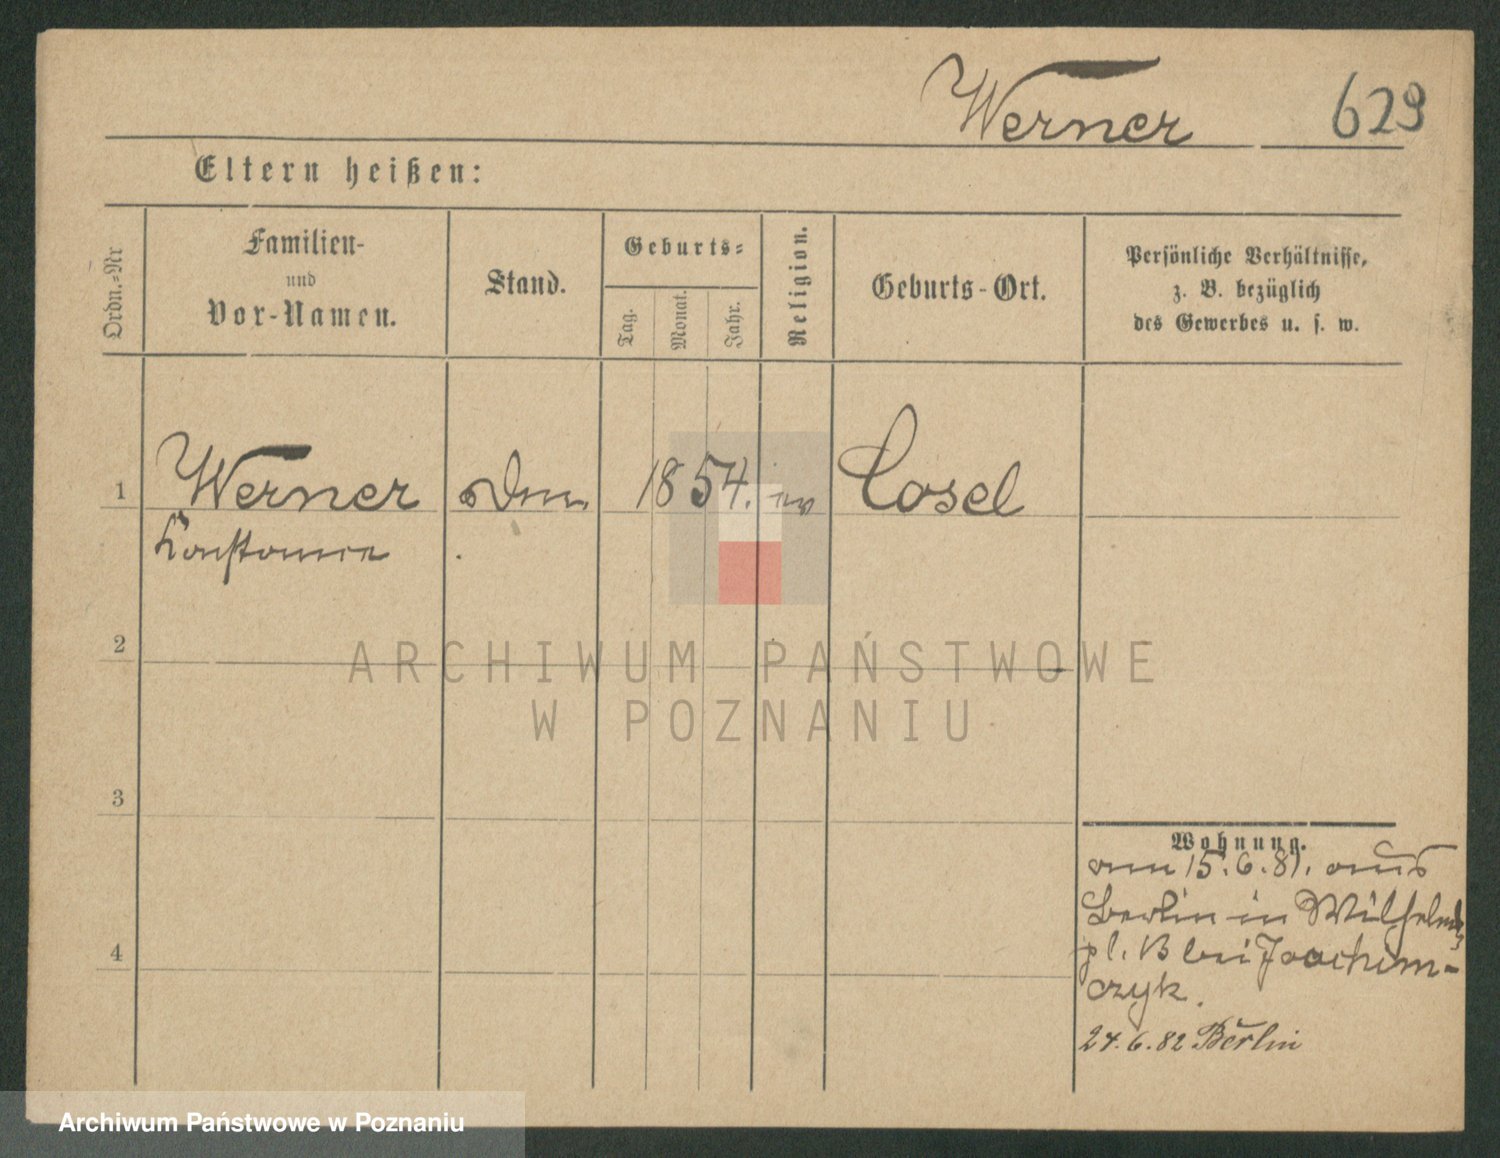 Werner 629
Eltern heißen:
Ordn.-Nr
Familien-
und
Vor-Namen.
Stand.
Geburts-
Tag.
Monat.
Jahr.
Religion.
Geburts-Ort.
Persönliche Verhältnisse,
z. B. bezüglich
des Gewerbes u. s. w.
1 Werner 1854. ev Cosel
2
3
4
Wohnung.
am 15.6.81. aus
Berlin in Wilhelms
pl. 13 bei Joachim-
czyk.
24.6.82 Berlin
ARCHIWUM PAŃSTWOWE
W POZNANIU
Archiwum Państwowe w Poznaniu